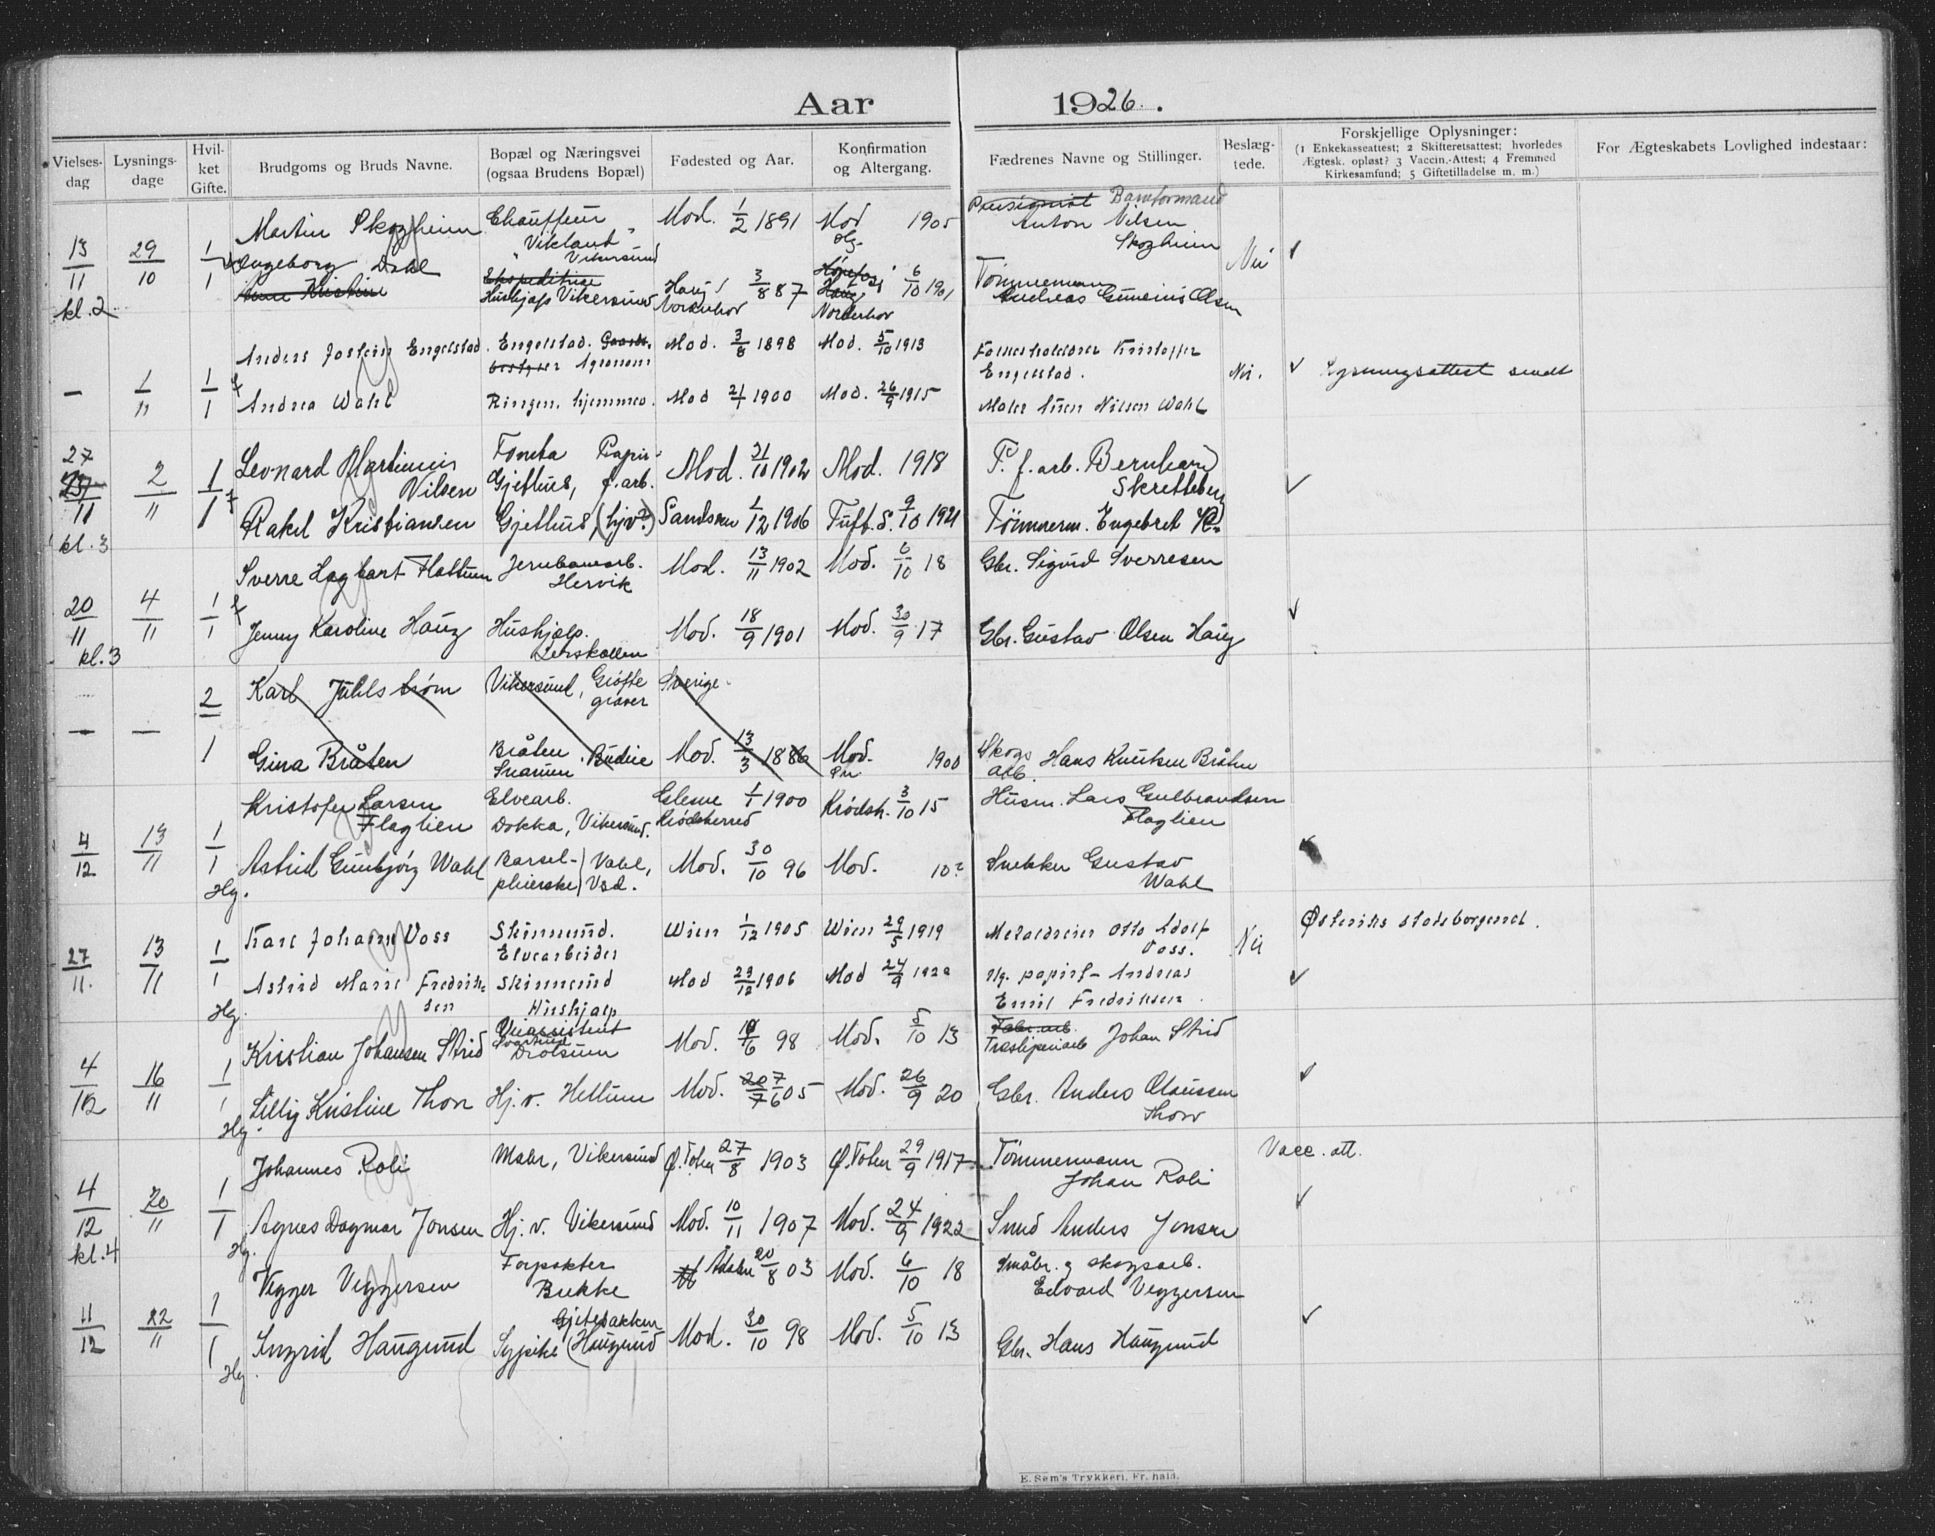 Aar 1926.
Vielses-dag
Lysnings-dage
Hvil-ket Gifte.
Brudgoms og Bruds Navne.
Bopæl og Næringsvei (ogsaa Brudens Bopæl)
Fødested og Aar.
Konfirmation og Altergang.
Fædrenes Navne og Stillinger.
Beslæg-tede.
Forskjellige Oplysninger:
(1 Enkekasseattest; 2 Skifteretsattest; hvorledes Ægtesk. opløst? 3 Vaccin.-Attest; 4 Fremmed Kirkesamfund; 5 Giftetilladelse m. m.)
For Ægteskabets Lovlighed indestaar:
13/11 kl. 2 29/10 1/1
Martin Skogheim Chauffeur Vikersund Mod. 1/2 1891 Mod 1905 Banformand Anton Nilsen Skogheim Nei
Ingeborg Dahl Anne Kristine Ekspeditrise Hushjælp Vikersund Haug Norderhov 3/8 87 Hønefoss Haug Norderhov 6/10 1901 Tømmermann Andreas Olsen
— 1/11 1/1
Anders Jostein Engelstad. Engelstad. Agronom Mod. 3/8 1898 Mod. 5/10 1913 Kristoffer Engelstad. Nei. Lysningsattest sendt
Andrea Wahl Ringen. hjemmev. Mod 21/1 1900 Mod. 26/9 1915 Maler Nilsen Wahl
27/11 kl. 3 2/11 1/1
Leonard Martinius Nilsen Papir- f. arb. Gjethus, Mod. 31/10 1902 Mod. 1918 P. f. arb. Bernhard Skretteberg
Rakel Kristiansen Gjethus (hjv.) 1/12 1906 9/10 1921 Tømmerm. Engebret K
20/11 kl. 3 4/11 1/1
Sverre Hagbart Flattum Jernbanearb. Hervik Mod. 13/11 1902 Mod. 6/10 18 Gbr. Sigurd Sverresen
Jenny Karoline Haug Hushjælp. Lerskallen Mod. 18/9 1901 Mod. 30/9 17 Gbr. Gustav Olsen Haug
— — 2
Karl Juhlstrøm Vikersund, Grøftegraver Sverige.
1 Gina Bråten Bråten Snarum. Budeie Mod. 13/3 1886 Mod. Sn 1900 Skogsarb. Hans Knutsen Bråten
4/12 13/11 1/1 Hg.
Kristofer Larsen Flaglien Elvearb. Dokka, Vikersund. Glesne Krødsherred 1/1 1900 Krødsh. 3/10 15 Husm. Lars Gulbrandsen Flaglien
Astrid Gunbjørg Wahl Barsel-pleierske Vahl, Vsd. Mod. 30/10 96 Mod. 10? Snekker Gustav Wahl
27/11. 13/11 1/1 Hg.
Karl Johann Voss Skinnsund. Elvearbeider Wien 1/12 1905 Wien 29/5 1919 Otto Adolf Voss. Nei Østeriks statsborgerret.
Astrid Marie Fredriksen Skinnsund Hushjælp Mod 23/12 1906 Mod 24/9 Andreas Emil Fredriksen
4/12 16/11 1/1 Hg.
Kristian Johansen Strid Veiassistent Drolsum Mod. 6 98 Mod. 5/10 13 Fabr. arb. Træsliperiarb Johan Strid
Lilly Kristine Thon Hj. v. Hellum Mod. 7/6 05 Mod. 26/9 20 Gbr. Anders Olaussen Thon
4/12 kl. 4 20/11 1/1 Hg.
Johannes Roli Maler, Vikersund Ø. Toten 27/8 1903 Ø. Toten 29/9 1917 Tømmermann Johan Roli Vacc. att.
Agnes Dagmar Jonsen Hj. v. Vikersund Mod. 10/11 1907 Mod. 24/9 1922 Smed Anders Jonsen
11/12 22/11 1/1 Hg.
Vegger Veggersen Forpakter Bukke Ådalen 20/8 03 Mod. 6/10 18 Småbr. og skogsarb. Edvard Veggersen
Ingrid Haugsund Sypike (Haugsund Gjetebakken Mod. 30/10 98 Mod. 5/10 13 Gbr. Hans Haugsund
E. Sem's Trykkeri, Fr.hald.